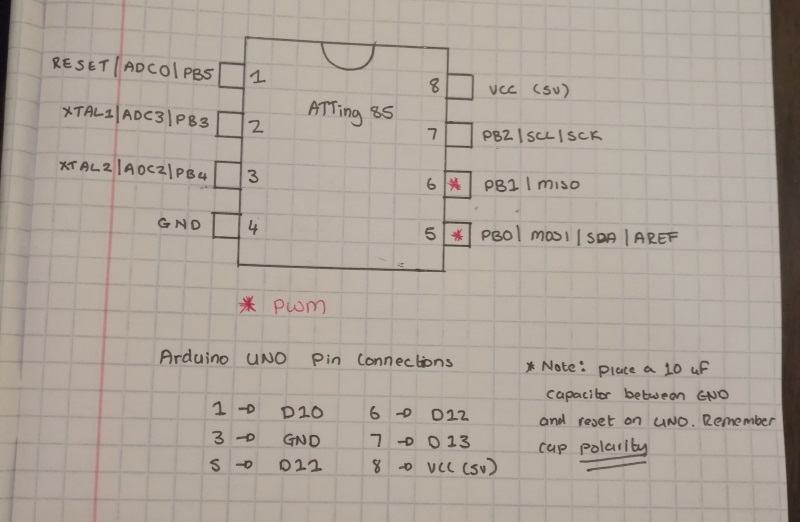 RESET|ADC0|PB5 1
XTAL1|ADC3|PB3 2
XTAL2|ADC2|PB4 3
GND 4
ATTing 85
8 VCC (5V)
7 PB2|SCL|SCK
6 * PB1|MISO
5 * PB0|MOSI|SDA|AREF
* PWM
Arduino UNO Pin Connections
1 → D10 6 → D12
3 → GND 7 → D13
5 → D11 8 → VCC (5V)
* Note: place a 10 uF
capacitor between GND
and reset on UNO. Remember
cap polarity